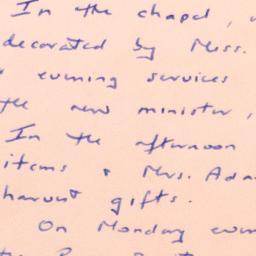 In the chapel,
decorated by Miss.
evening services
the new minister,
In the afternoon
items & Mrs. Ada
harvest gifts.
On Monday even
the